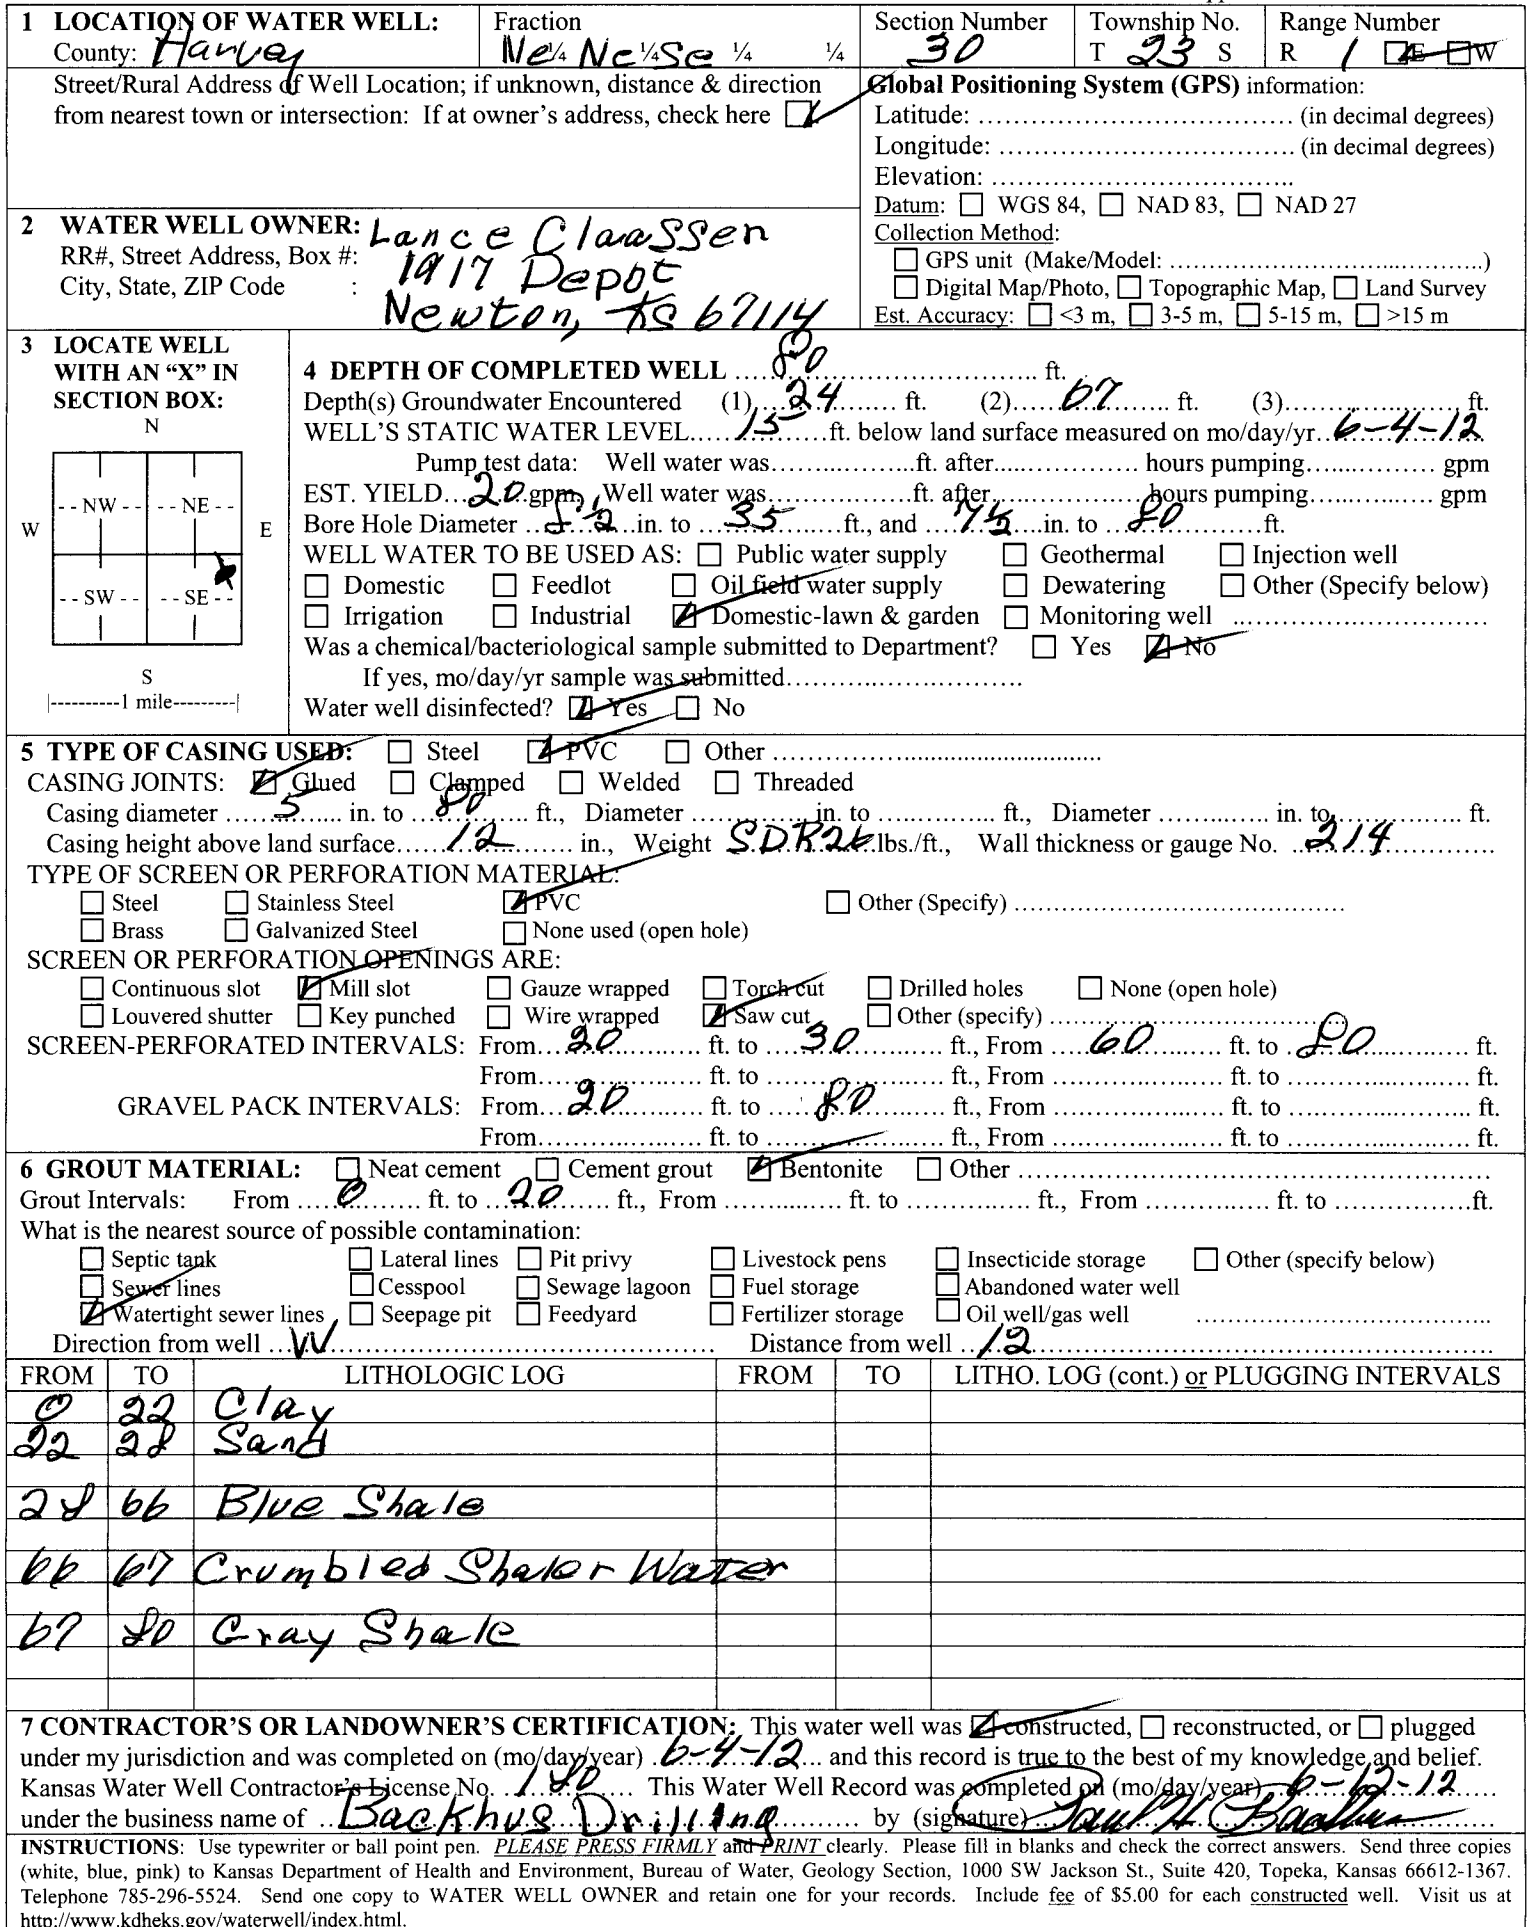 1 LOCATION OF WATER WELL: Fraction Section Number Township No. Range Number
County: Harvey Ne ¼ Ne ¼ Se ¼ ¼ 30 T 23 S R 1 ☑ E ☐ W
Street/Rural Address of Well Location; if unknown, distance & direction
from nearest town or intersection: If at owner's address, check here ☑
Global Positioning System (GPS) information:
Latitude: ........ (in decimal degrees)
Longitude: ........ (in decimal degrees)
Elevation: ........
Datum: ☐ WGS 84, ☐ NAD 83, ☐ NAD 27
Collection Method:
☐ GPS unit (Make/Model: ........)
☐ Digital Map/Photo, ☐ Topographic Map, ☐ Land Survey
Est. Accuracy: ☐ <3 m, ☐ 3-5 m, ☐ 5-15 m, ☐ >15 m
2 WATER WELL OWNER: Lance Claassen
RR#, Street Address, Box #: 1917 Depot
City, State, ZIP Code : Newton, KS 67114
3 LOCATE WELL
WITH AN "X" IN
SECTION BOX:
N
NW NE
W E
SW SE
S
|----------1 mile---------|
4 DEPTH OF COMPLETED WELL 80 ft.
Depth(s) Groundwater Encountered (1) 24 ft. (2) 67 ft. (3) ........ ft.
WELL'S STATIC WATER LEVEL 15 ft. below land surface measured on mo/day/yr 6-4-12
Pump test data: Well water was ........ ft. after ........ hours pumping ........ gpm
EST. YIELD 20 gpm, Well water was ........ ft. after ........ hours pumping ........ gpm
Bore Hole Diameter 8½ in. to 35 ft., and 7½ in. to 80 ft.
WELL WATER TO BE USED AS: ☐ Public water supply ☐ Geothermal ☐ Injection well
☐ Domestic ☐ Feedlot ☐ Oil field water supply ☐ Dewatering ☐ Other (Specify below)
☐ Irrigation ☐ Industrial ☑ Domestic-lawn & garden ☐ Monitoring well ........
Was a chemical/bacteriological sample submitted to Department? ☐ Yes ☑ No
If yes, mo/day/yr sample was submitted ........
Water well disinfected? ☑ Yes ☐ No
5 TYPE OF CASING USED: ☐ Steel ☑ PVC ☐ Other ........
CASING JOINTS: ☑ Glued ☐ Clamped ☐ Welded ☐ Threaded
Casing diameter 5 in. to 80 ft., Diameter ........ in. to ........ ft., Diameter ........ in. to ........ ft.
Casing height above land surface 12 in., Weight SDR26 lbs./ft., Wall thickness or gauge No. 214
TYPE OF SCREEN OR PERFORATION MATERIAL:
☐ Steel ☐ Stainless Steel ☑ PVC ☐ Other (Specify) ........
☐ Brass ☐ Galvanized Steel ☐ None used (open hole)
SCREEN OR PERFORATION OPENINGS ARE:
☐ Continuous slot ☑ Mill slot ☐ Gauze wrapped ☐ Torch cut ☐ Drilled holes ☐ None (open hole)
☐ Louvered shutter ☐ Key punched ☐ Wire wrapped ☑ Saw cut ☐ Other (specify) ........
SCREEN-PERFORATED INTERVALS: From 20 ft. to 30 ft., From 60 ft. to 80 ft.
From ........ ft. to ........ ft., From ........ ft. to ........ ft.
GRAVEL PACK INTERVALS: From 20 ft. to 80 ft., From ........ ft. to ........ ft.
From ........ ft. to ........ ft., From ........ ft. to ........ ft.
6 GROUT MATERIAL: ☐ Neat cement ☐ Cement grout ☑ Bentonite ☐ Other ........
Grout Intervals: From 0 ft. to 20 ft., From ........ ft. to ........ ft., From ........ ft. to ........ ft.
What is the nearest source of possible contamination:
☐ Septic tank ☐ Lateral lines ☐ Pit privy ☐ Livestock pens ☐ Insecticide storage ☐ Other (specify below)
☐ Sewer lines ☐ Cesspool ☐ Sewage lagoon ☐ Fuel storage ☐ Abandoned water well
☑ Watertight sewer lines ☐ Seepage pit ☐ Feedyard ☐ Fertilizer storage ☐ Oil well/gas well ........
Direction from well W Distance from well 12
FROM TO LITHOLOGIC LOG FROM TO LITHO. LOG (cont.) or PLUGGING INTERVALS
0 22 Clay
22 28 Sand
28 66 Blue Shale
66 67 Crumbled Shale Water
67 80 Gray Shale
7 CONTRACTOR'S OR LANDOWNER'S CERTIFICATION: This water well was ☑ constructed, ☐ reconstructed, or ☐ plugged
under my jurisdiction and was completed on (mo/day/year) 6-4-12 and this record is true to the best of my knowledge and belief.
Kansas Water Well Contractor's License No. 180 This Water Well Record was completed on (mo/day/year) 6-12-12
under the business name of Backhus Drilling by (signature) Paul H Backhus
INSTRUCTIONS: Use typewriter or ball point pen. PLEASE PRESS FIRMLY and PRINT clearly. Please fill in blanks and check the correct answers. Send three copies
(white, blue, pink) to Kansas Department of Health and Environment, Bureau of Water, Geology Section, 1000 SW Jackson St., Suite 420, Topeka, Kansas 66612-1367.
Telephone 785-296-5524. Send one copy to WATER WELL OWNER and retain one for your records. Include fee of $5.00 for each constructed well. Visit us at
http://www.kdheks.gov/waterwell/index.html.